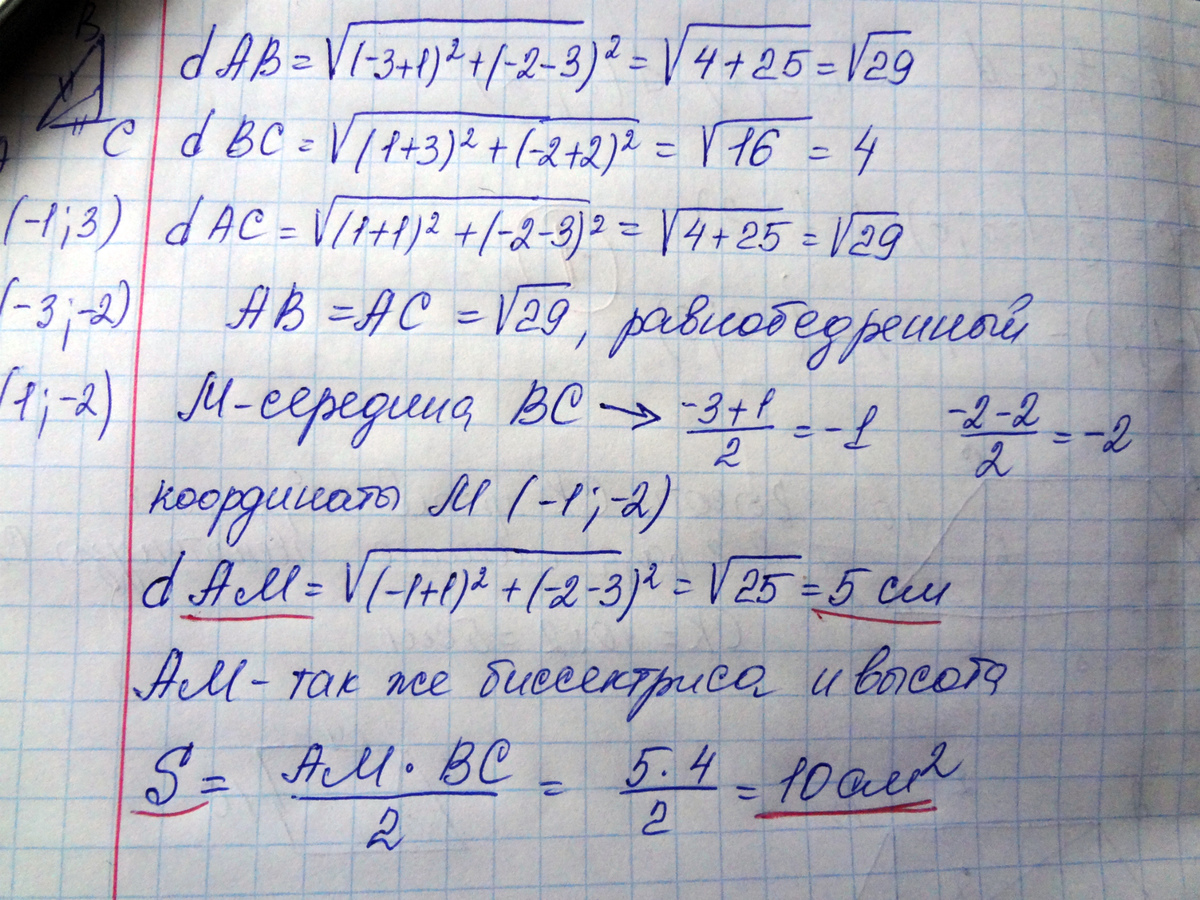 B
C
d AB = √(-3+1)² + (-2-3)² = √4+25 = √29
d BC = √(1+3)² + (-2+2)² = √16 = 4
(-1;3) d AC = √(1+1)² + (-2-3)² = √4+25 = √29
(-3;-2) AB = AC = √29, равнобедренный
(1;-2) М-середина BC → -3+1/2 = -1 -2-2/2 = -2
координаты М (-1;-2)
d AM = √(-1+1)² + (-2-3)² = √25 = 5 см
AM - так же биссектриса и высота
S = AM · BC/2 = 5·4/2 = 10 см²